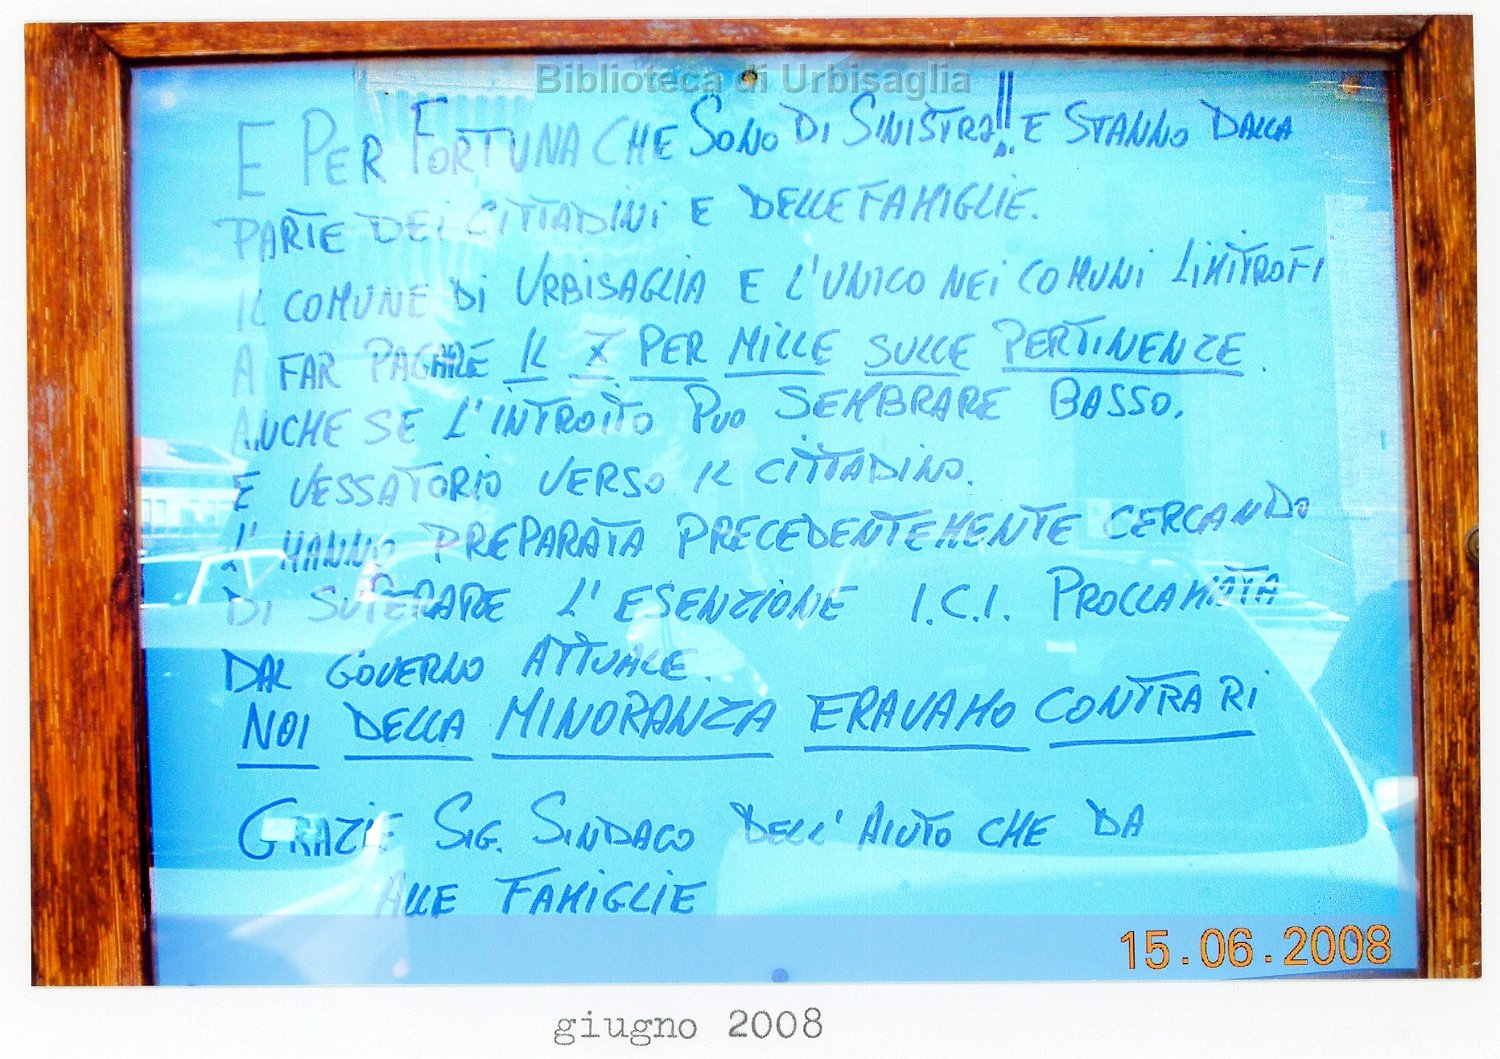 Biblioteca di Urbisaglia
E PER FORTUNA CHE SONO DI SINISTRA!! E STANNO DALLA
PARTE DEI CITTADINI E DELLE FAMIGLIE.
IL COMUNE DI URBISAGLIA E L'UNICO NEI COMUNI LIMITROFI
A FAR PAGARE IL 7 PER MILLE SULLE PERTINENZE.
ANCHE SE L'INTROITO PUO SEMBRARE BASSO.
E VESSATORIO VERSO IL CITTADINO.
L'HANNO PREPARATA PRECEDENTEMENTE CERCANDO
DI SUPERARE L'ESENZIONE I.C.I. PROCLAMATA
DAL GOVERNO ATTUALE.
NOI DELLA MINORANZA ERAVAMO CONTRARI
GRAZIE SIG. SINDACO DELL'AIUTO CHE DA
ALLE FAMIGLIE
15.06.2008
giugno 2008